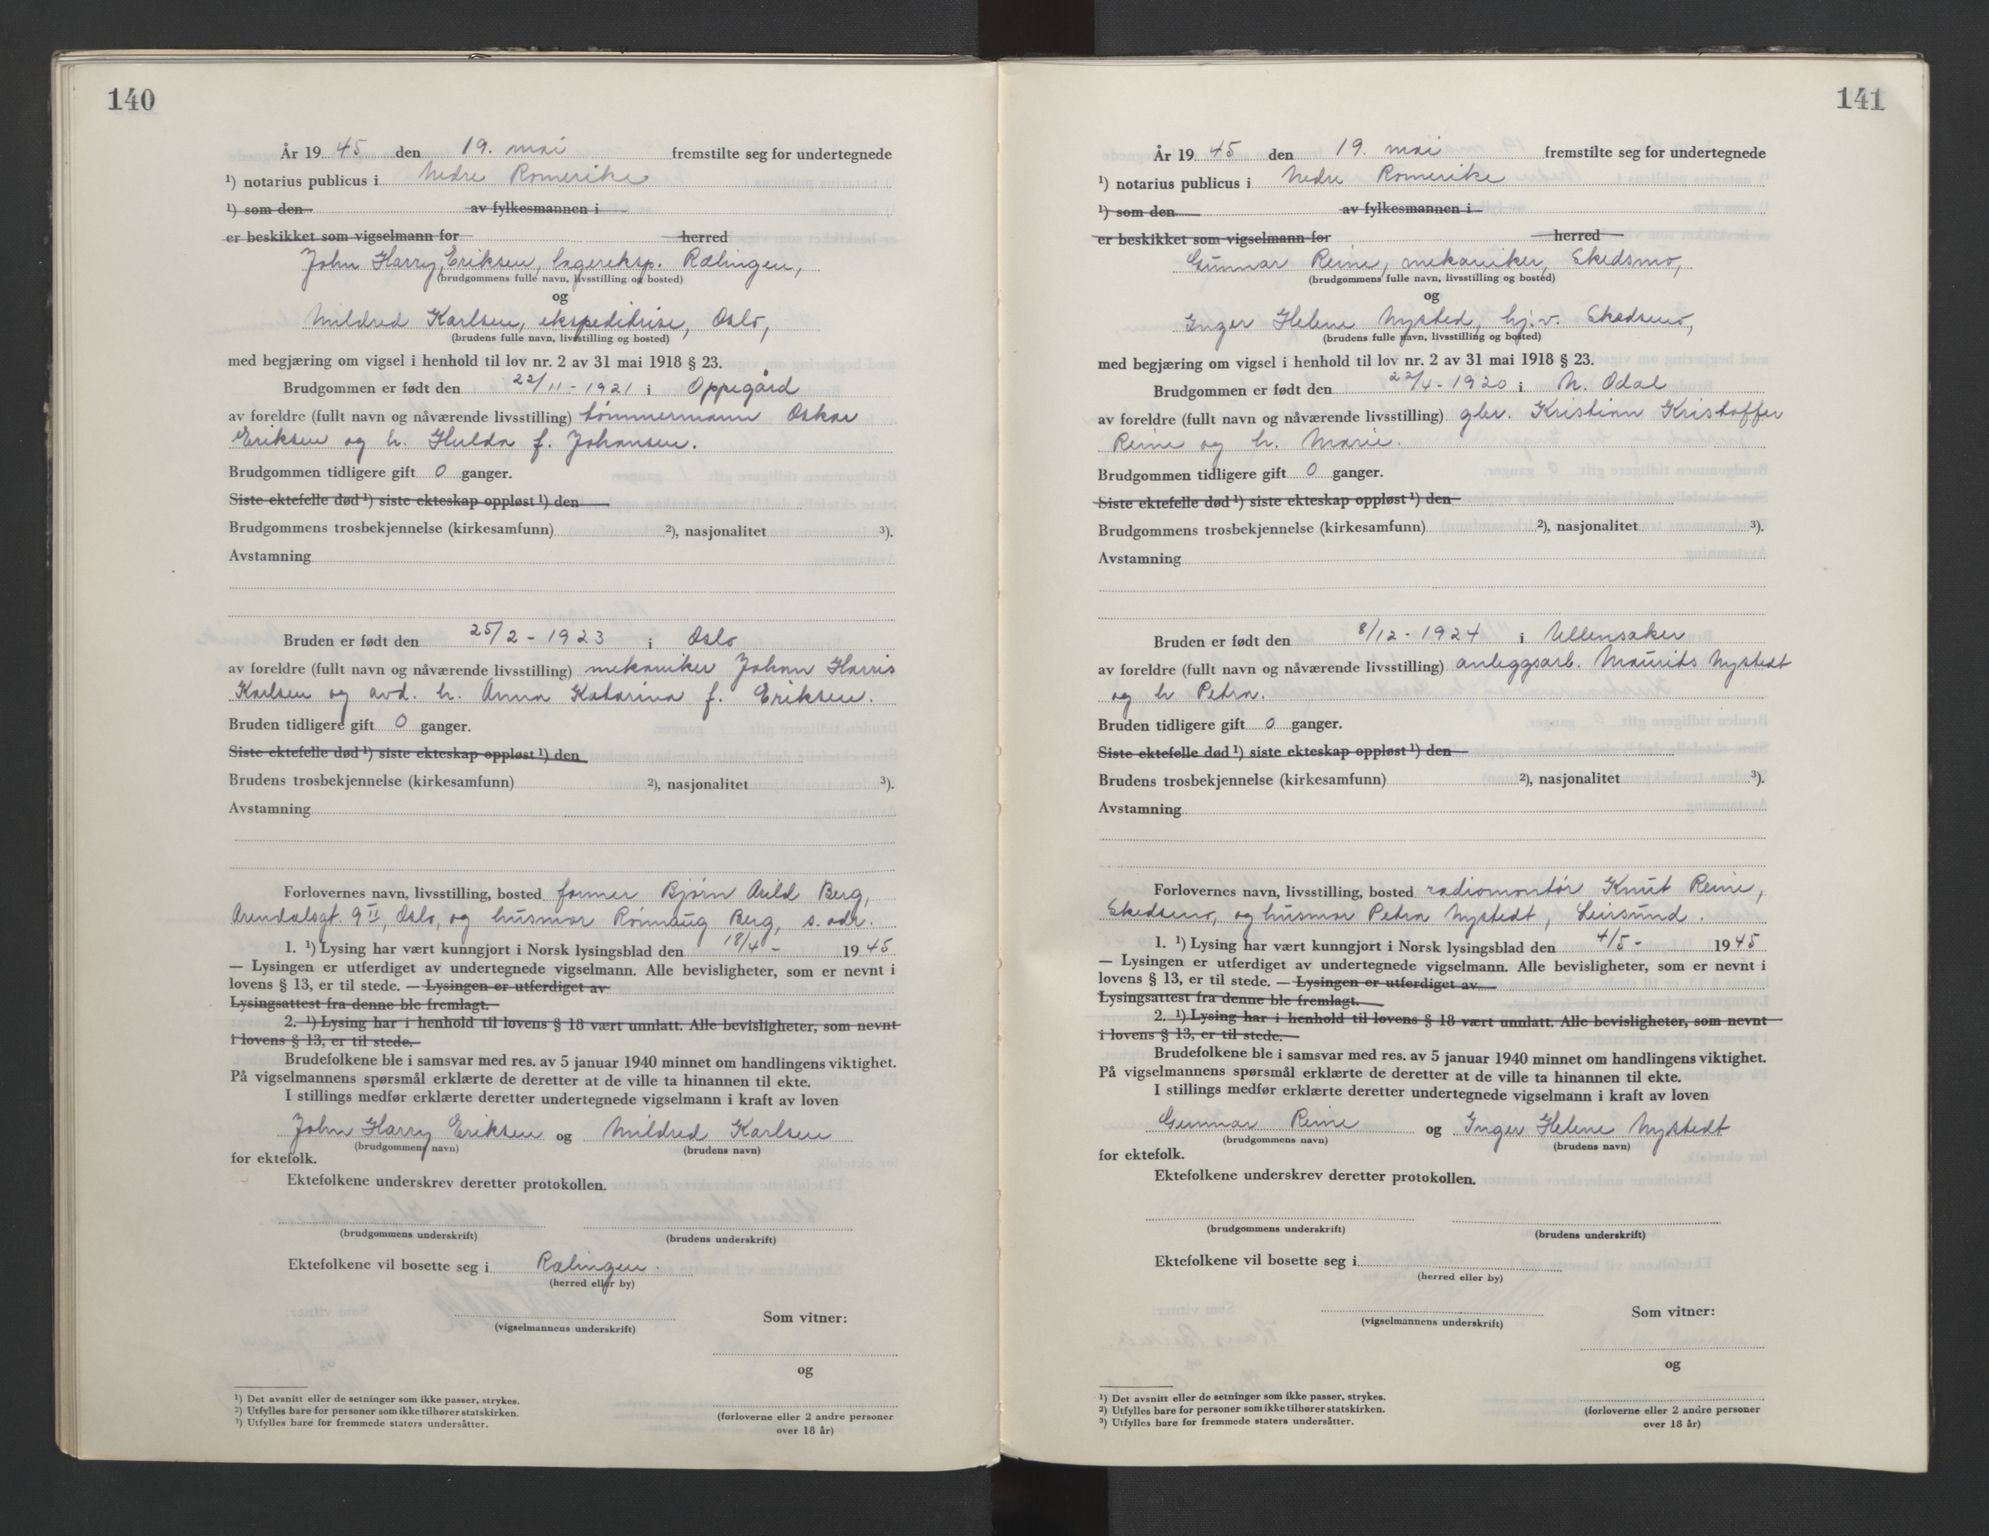 140
År 19 45 den 19. mai fremstilte seg for undertegnede
¹) notarius publicus i Nedre Romerike
¹) som den av fylkesmannen i
er beskikket som vigselmann for herred
John Harry Eriksen, lagereksp. Rælingen,
(brudgommens fulle navn, livsstilling og bosted)
og
Mildred Karlsen, ekspeditrise, Oslo,
(brudens fulle navn, livsstilling og bosted)
med begjæring om vigsel i henhold til lov nr. 2 av 31 mai 1918 § 23.
Brudgommen er født den 22/11 - 1921 i Oppegård
av foreldre (fullt navn og nåværende livsstilling) tømmermann Oskar
Eriksen og h. Hulda f. Johansen.
Brudgommen tidligere gift 0 ganger.
Siste ektefelle død ¹) siste ekteskap oppløst ¹) den
Brudgommens trosbekjennelse (kirkesamfunn) ²), nasjonalitet ³).
Avstamning
Bruden er født den 25/2 - 1923 i Oslo
av foreldre (fullt navn og nåværende livsstilling) mekaniker Johan Harris
Karlsen og avd. h. Anna Katarina f. Eriksen.
Bruden tidligere gift 0 ganger.
Siste ektefelle død ¹) siste ekteskap oppløst ¹) den
Brudens trosbekjennelse (kirkesamfunn) ²), nasjonalitet ³).
Avstamning
Forlovernes navn, livsstilling, bosted former Bjørn Arild Berg,
Arendalsgt. 9 II, Oslo, og husmor Rønnaug Berg, s. adr.
1. ¹) Lysing har vært kunngjort i Norsk lysingsblad den 18/4 - 1945
— Lysingen er utferdiget av undertegnede vigselmann. Alle bevisligheter, som er nevnt i
lovens § 13, er til stede. — Lysingen er utferdiget av
Lysingsattest fra denne ble fremlagt.
2. ¹) Lysing har i henhold til lovens § 18 vært unnlatt. Alle bevisligheter, som nevnt
i lovens § 13, er til stede.
Brudefolkene ble i samsvar med res. av 5 januar 1940 minnet om handlingens viktighet.
På vigselmannens spørsmål erklærte de deretter at de ville ta hinannen til ekte.
I stillings medfør erklærte deretter undertegnede vigselmann i kraft av loven
John Harry Eriksen og Mildred Karlsen
(brudgommens navn) (brudens navn)
for ektefolk.
Ektefolkene underskrev deretter protokollen.
(brudgommens underskrift) (brudens underskrift)
Ektefolkene vil bosette seg i Rælingen.
(herred eller by)
Som vitner:
(vigselmannens underskrift)
og
¹) Det avsnitt eller de setninger som ikke passer, strykes.
²) Utfylles bare for personer som ikke tilhører statskirken.
³) Utfylles bare for fremmede staters undersåtter.
(forloverne eller 2 andre personer
over 18 år)
141
År 19 45 den 19. mai fremstilte seg for undertegnede
¹) notarius publicus i Nedre Romerike
¹) som den av fylkesmannen i
er beskikket som vigselmann for herred
Gunnar Reine, mekaniker, Skedsmo,
(brudgommens fulle navn, livsstilling og bosted)
og
Inger Helene Nysted, hj.v. Skedsmo,
(brudens fulle navn, livsstilling og bosted)
med begjæring om vigsel i henhold til lov nr. 2 av 31 mai 1918 § 23.
Brudgommen er født den 22/4 - 1920 i N. Odal
av foreldre (fullt navn og nåværende livsstilling) gbr. Kristian Kristoffer
Reine og h. Marie.
Brudgommen tidligere gift 0 ganger.
Siste ektefelle død ¹) siste ekteskap oppløst ¹) den
Brudgommens trosbekjennelse (kirkesamfunn) ²), nasjonalitet ³).
Avstamning
Bruden er født den 8/12 - 1924 i Ullensaker
av foreldre (fullt navn og nåværende livsstilling) anleggsarb. Maurits Nystedt
og h Petra.
Bruden tidligere gift 0 ganger.
Siste ektefelle død ¹) siste ekteskap oppløst ¹) den
Brudens trosbekjennelse (kirkesamfunn) ²), nasjonalitet ³).
Avstamning
Forlovernes navn, livsstilling, bosted radiomontør Knut Reine,
Skedsmo, og husmor Petra Nystedt, Leirsund.
1. ¹) Lysing har vært kunngjort i Norsk lysingsblad den 4/5 - 1945
— Lysingen er utferdiget av undertegnede vigselmann. Alle bevisligheter, som er nevnt i
lovens § 13, er til stede. — Lysingen er utferdiget av
Lysingsattest fra denne ble fremlagt.
2. ¹) Lysing har i henhold til lovens § 18 vært unnlatt. Alle bevisligheter, som nevnt
i lovens § 13, er til stede.
Brudefolkene ble i samsvar med res. av 5 januar 1940 minnet om handlingens viktighet.
På vigselmannens spørsmål erklærte de deretter at de ville ta hinannen til ekte.
I stillings medfør erklærte deretter undertegnede vigselmann i kraft av loven
Gunnar Reine og Inger Helene Nystedt
(brudgommens navn) (brudens navn)
for ektefolk.
Ektefolkene underskrev deretter protokollen.
(brudgommens underskrift) (brudens underskrift)
Ektefolkene vil bosette seg i
(herred eller by)
Som vitner:
(vigselmannens underskrift)
og
¹) Det avsnitt eller de setninger som ikke passer, strykes.
²) Utfylles bare for personer som ikke tilhører statskirken.
³) Utfylles bare for fremmede staters undersåtter.
(forloverne eller 2 andre personer
over 18 år)